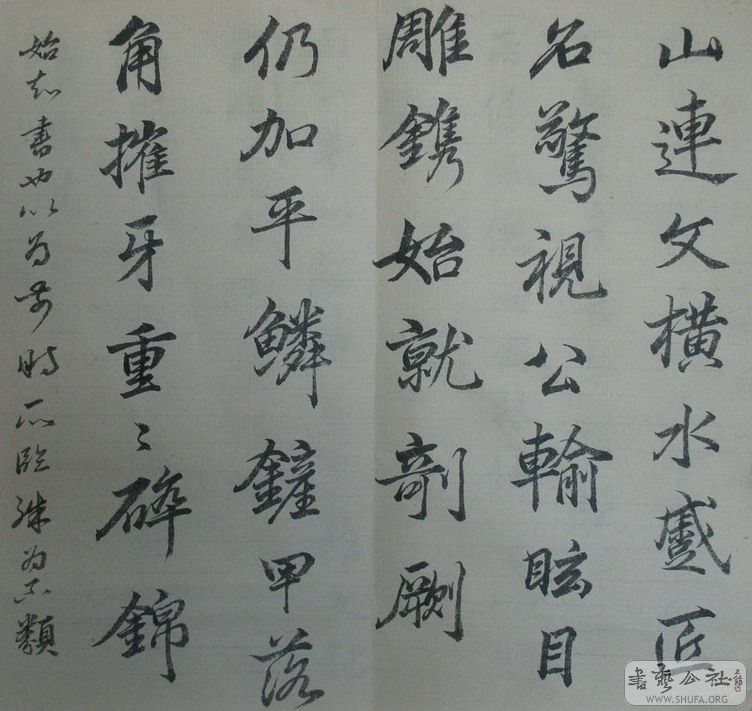 山連文橫水蹙匠
石驚視公輸眩目
雕鐫始就剞劂
仍加平鱗鏟甲落
角摧牙重々碎錦
始知書也以為前時所臨殊為不類
書藝公社
WWW.SHUFA.ORG